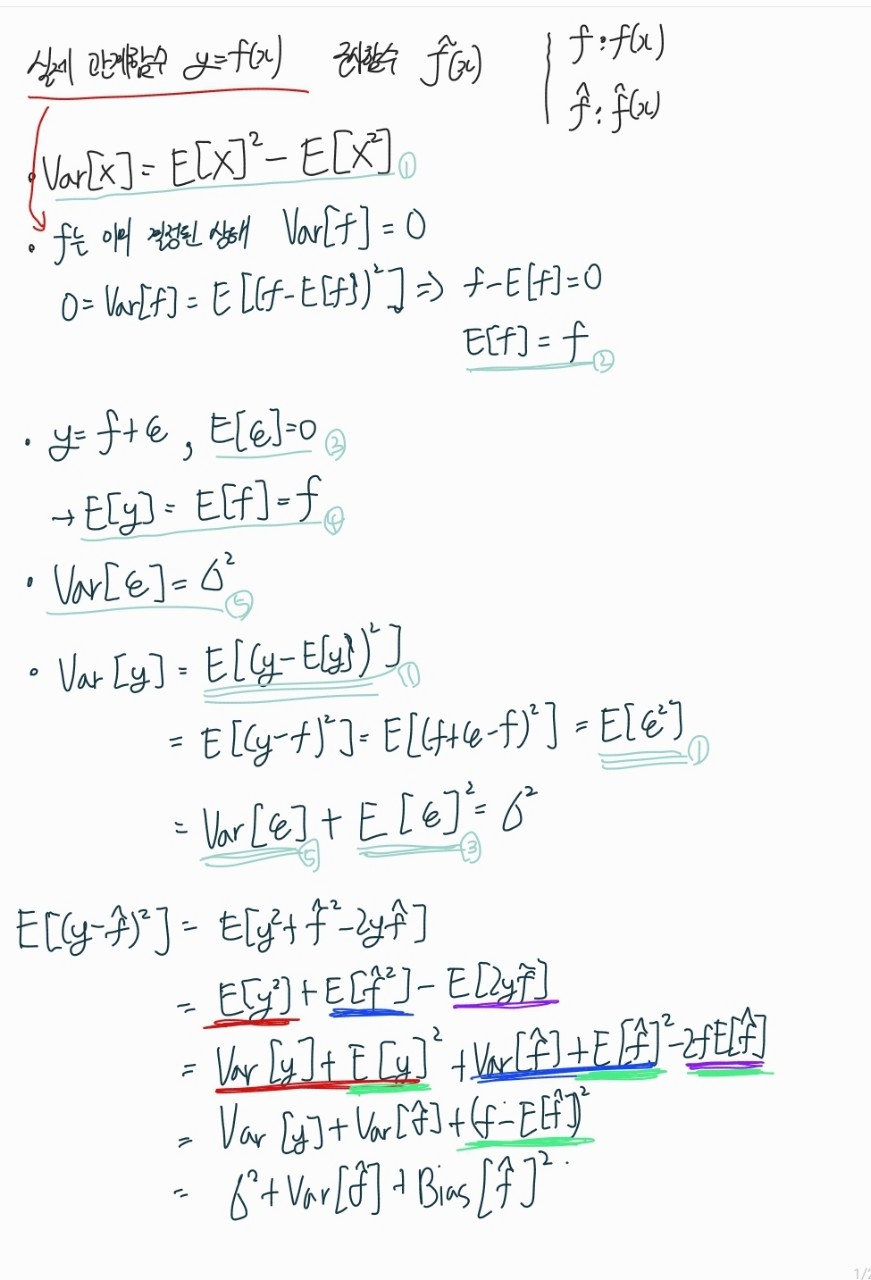 실제 관계함수 y=f(x) 근사함수 f̂(x) | f : f(x)
f̂ : f̂(x)
• Var[X] = E[X]² − E[X²] ①
• f는 이미 결정된 상태 Var[f] = 0
0 = Var[f] = E[(f−E[f])²] ⇒ f−E[f]=0
E[f] = f ②
• y = f+ϵ , E[ϵ]=0 ③
→ E[y] = E[f] = f ④
• Var[ϵ] = σ² ⑤
• Var[y] = E[(y−E[y])²] ①
= E[(y−f)²] = E[(f+ϵ−f)²] = E[ϵ²] ①
= Var[ϵ] ⑤ + E[ϵ]² ③ = σ²
E[(y−f̂)²] = E[y²+f̂²−2yf̂]
= E[y²] + E[f̂²] − E[2yf̂]
= Var[y] + E[y]² + Var[f̂] + E[f̂]² − 2fE[f̂]
= Var[y] + Var[f̂] + (f−E[f̂])²
= σ² + Var[f̂] + Bias[f̂]².
1/2